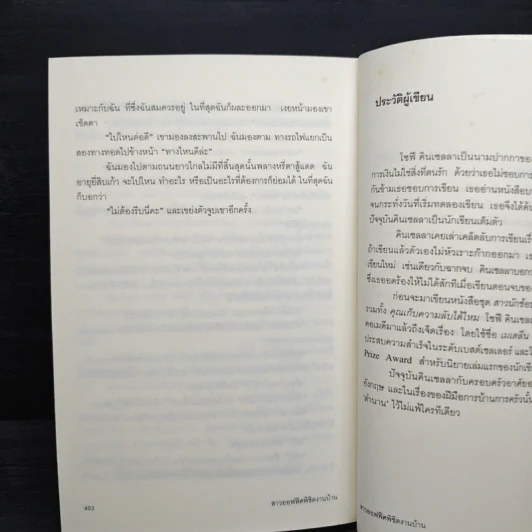 เหมาะกับฉัน ที่ซึ่งฉันสมควรอยู่ ในที่สุดฉันก็ผละออกมา เงยหน้ามองเขา
เช็ดตา
“ไปไหนต่อดี” เขามองลงสะพานไป ฉันมองตาม ทางรถไฟแยกเป็น
สองทางทอดไปข้างหน้า “ทางไหนดีล่ะ”
ฉันมองไปตามถนนยาวไกลไม่มีที่สิ้นสุดนั้นพลางหรี่ตาสู้แดด ฉัน
อายุยี่สิบเก้า จะไปไหน ทำอะไร หรือเป็นอะไรที่ต้องการก็ย่อมได้ ในที่สุดฉัน
ก็บอกว่า
“ไม่ต้องรีบนี่คะ” และเขย่งตัวจูบเขาอีกครั้ง
402
สาวออฟฟิศพิชิตงานบ้าน
ประวัติผู้เขียน
โซฟี คินเซลลาเป็นนามปากกาของ
การเงินไม่ใช่สิ่งที่ตนรัก ด้วยว่าเธอไม่ชอบการ
กันข้ามเธอชอบการเขียน เธออ่านหนังสือบ
จนกระทั่งวันที่เริ่มทดลองเขียน เธอจึงได้ค้น
ปัจจุบันคินเซลลาเป็นนักเขียนเต็มตัว
คินเซลลาเคยเล่าเคล็ดลับการเขียนเรื่
ถ้าเขียนแล้วตัวเองไม่หัวเราะก๊ากออกมา เธ
เขียนใหม่ เช่นเดียวกับฉากจบ คินเซลลาบอก
ซึ่งเธอดร้องไห้ไม่ได้สักทีเมื่อเขียนตอนจบของ
ก่อนจะมาเขียนหนังสือชุด สาวนักช็อ
รวมทั้ง คุณเก็บความลับได้ไหม โซฟี คินเซล
คอเมดีมาแล้วถึงเจ็ดเรื่อง โดยใช้ชื่อ เมเดลีน
ประสบความสำเร็จในระดับเบสต์เซลเลอร์ และไ
Prize Award สำหรับนิยายเล่มแรกของนักเขี
ปัจจุบันคินเซลลากับครอบครัวอาศัยอ
อังกฤษ และในเรื่องของฝีมือการบ้านการครัวนั้น
‘ตำนาน’ ไว้ไม่แพ้ใครทีเดียว
สาวออฟฟิศพิชิตงานบ้าน